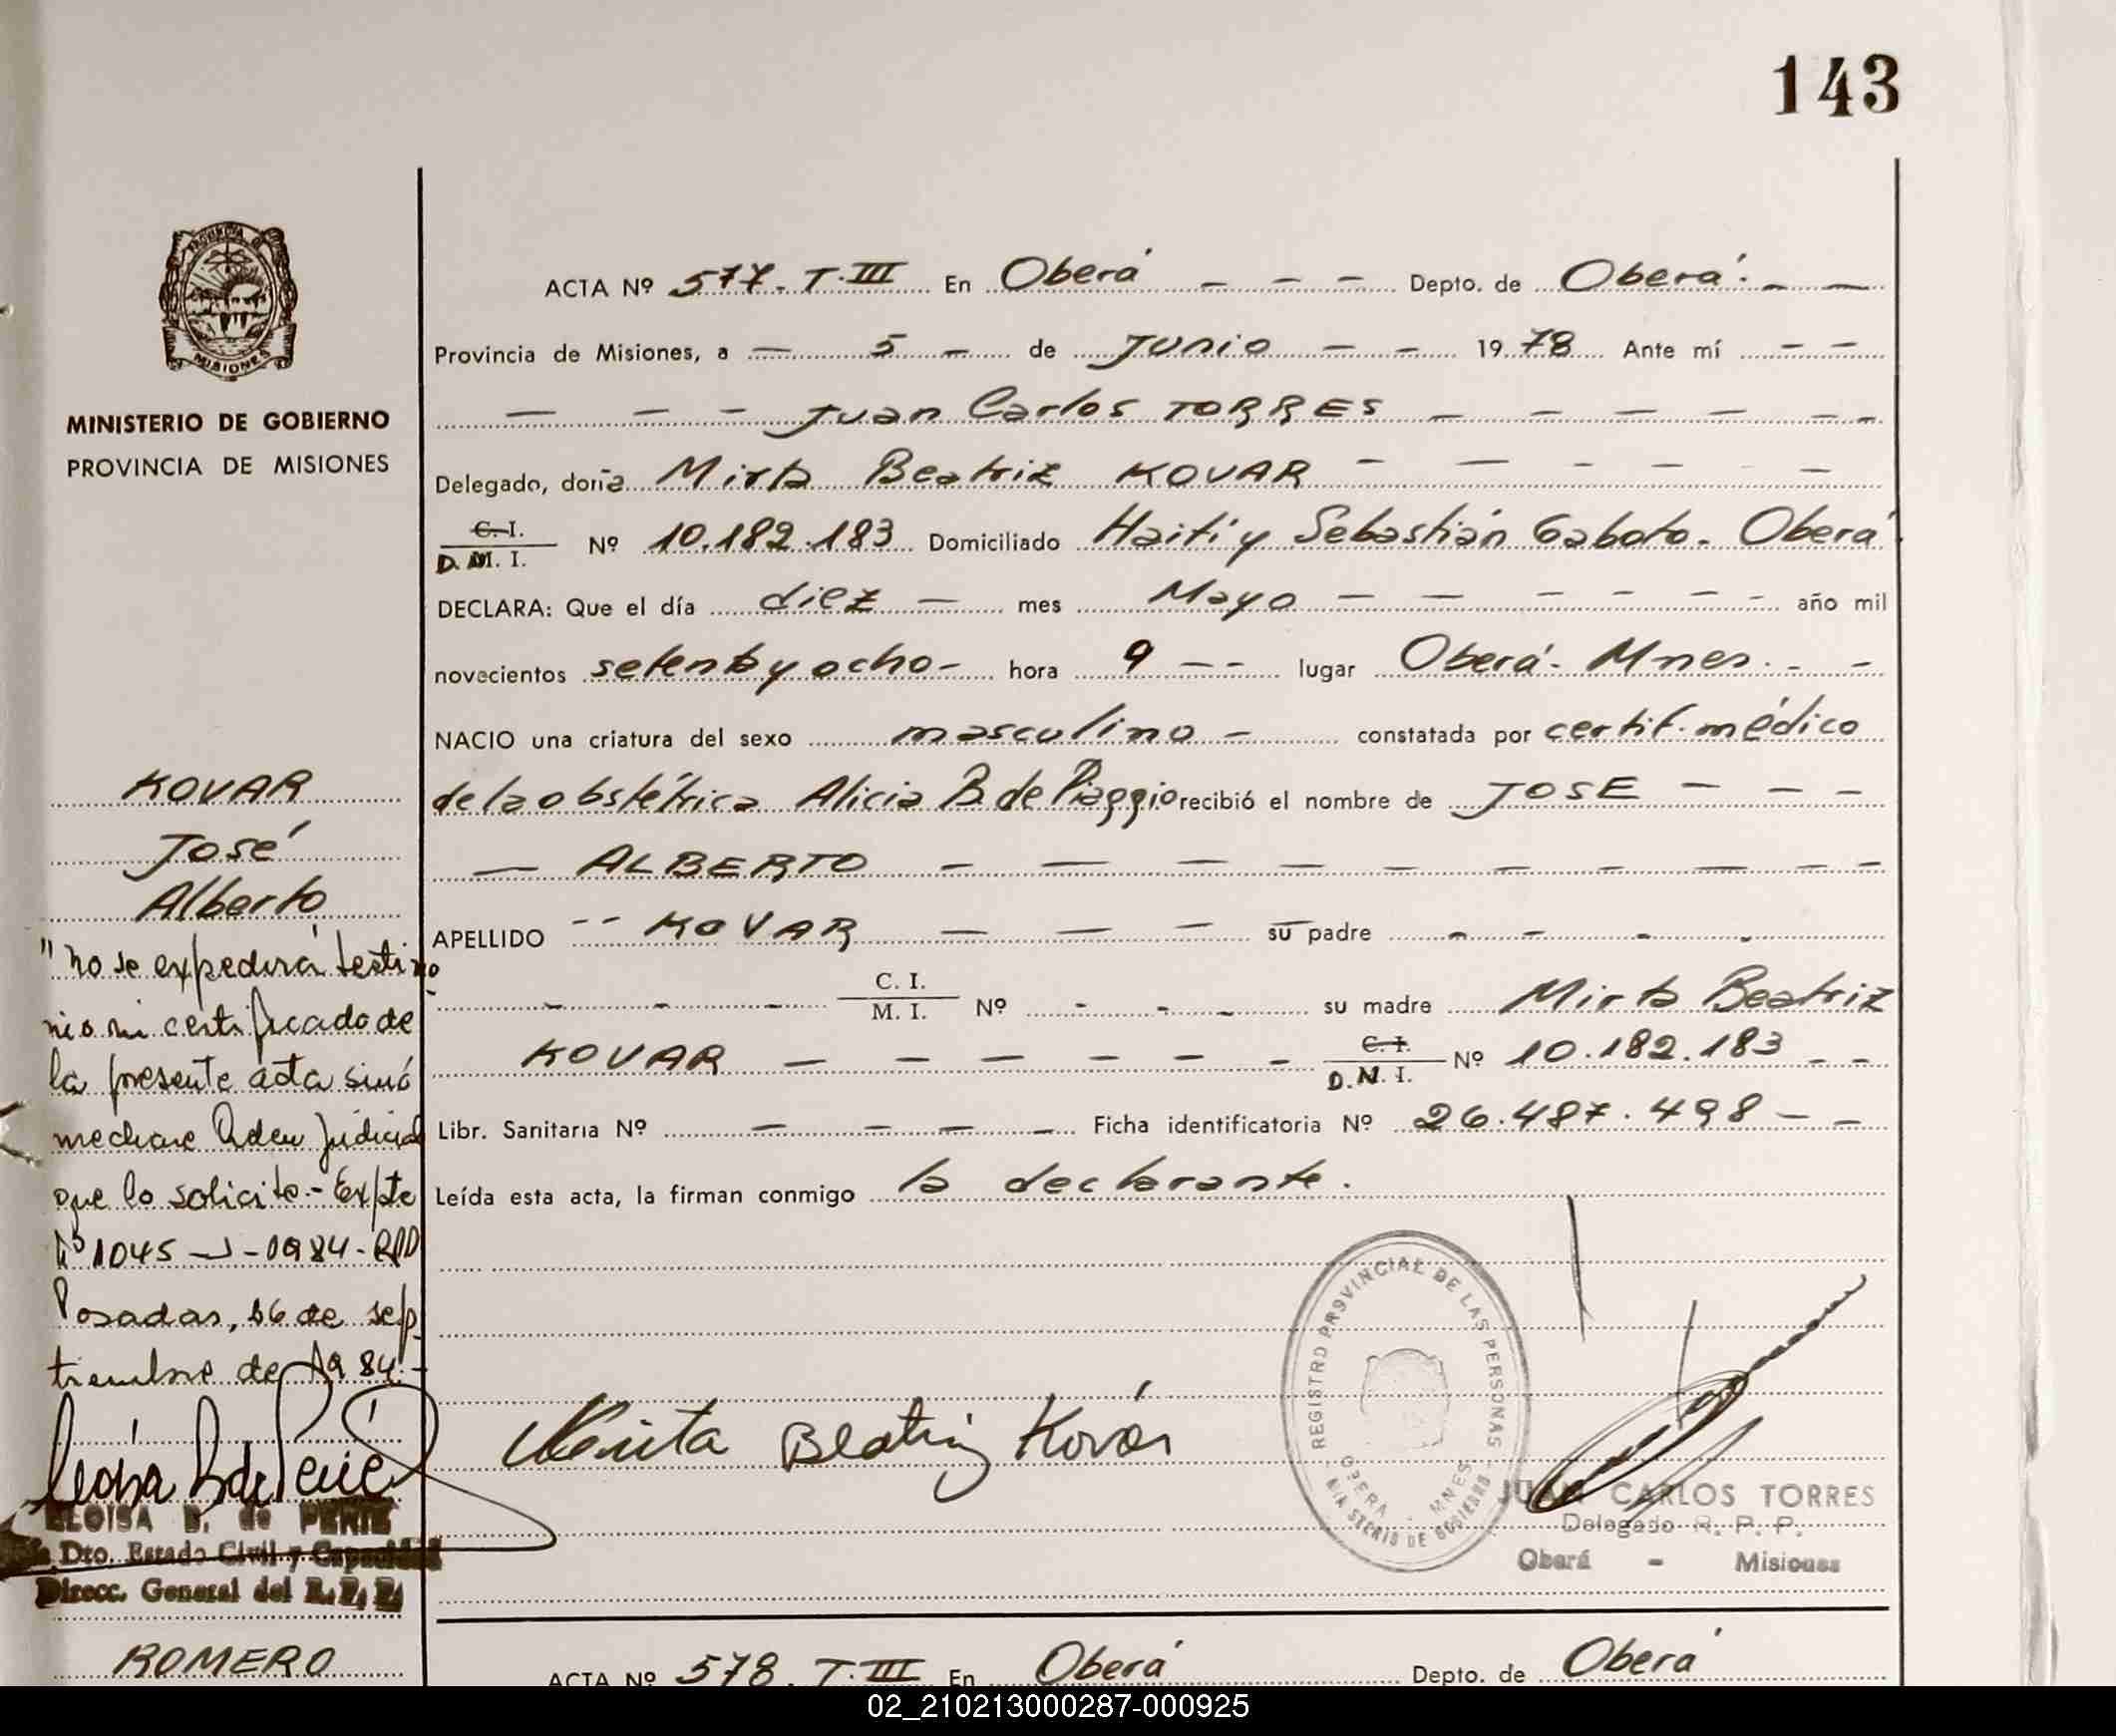 143
MINISTERIO DE GOBIERNO
PROVINCIA DE MISIONES
KOVAR
José
Alberto
"no se expedirá testimo
nio ni certificado de
la presente acta sinó
mediane Orden Judicial
que lo solicite.- Expte
Nº 1045 - J - 984 - RPP
Posadas, 26 de sep
tiembre de 1984.-
ELOISA B. de
Dto. Estado Civil y Capacidad
Direcc. General del R. P. P.
ROMERO
ACTA Nº 577. T. III En Oberá - - - Depto. de Oberá. - -
Provincia de Misiones, a - 5 - de Junio - - 1978 Ante mí - -
- - - Juan Carlos TORRES - - - - - -
Delegado, doña Mirta Beatriz KOVAR - - - - - -
C. I.
D. M. I. Nº 10.182.183 Domiciliado Haití y Sebastián Gaboto. Oberá
DECLARA: Que el día diez - mes Mayo - - - - - - año mil
novecientos setenta y ocho - hora 9 - - lugar Oberá - Mnes. - -
NACIO una criatura del sexo masculino - constatada por certif. médico
de la obstétrica Alicia B. de Piaggio recibió el nombre de JOSE - - -
- ALBERTO - - - - - - - - - -
APELLIDO -- KOVAR - - - su padre - - - -
- - - C. I.
M. I. Nº - - - su madre Mirta Beatriz
KOVAR - - - - - - C. I.
D. M. I. Nº 10.182.183 - -
Libr. Sanitaria Nº - - - - Ficha identificatoria Nº 26.487.498 - -
Leída esta acta, la firman conmigo la declarante.
Mirta Beatriz Kovár
REGISTRO PROVINCIAL DE LAS PERSONAS
OBERA - MNES
MINISTERIO DE GOBIERNO
JUAN CARLOS TORRES
Delegado R. P. P.
Oberá - Misiones
ACTA Nº 578. T. III En Oberá Depto. de Oberá
02_210213000287-000925